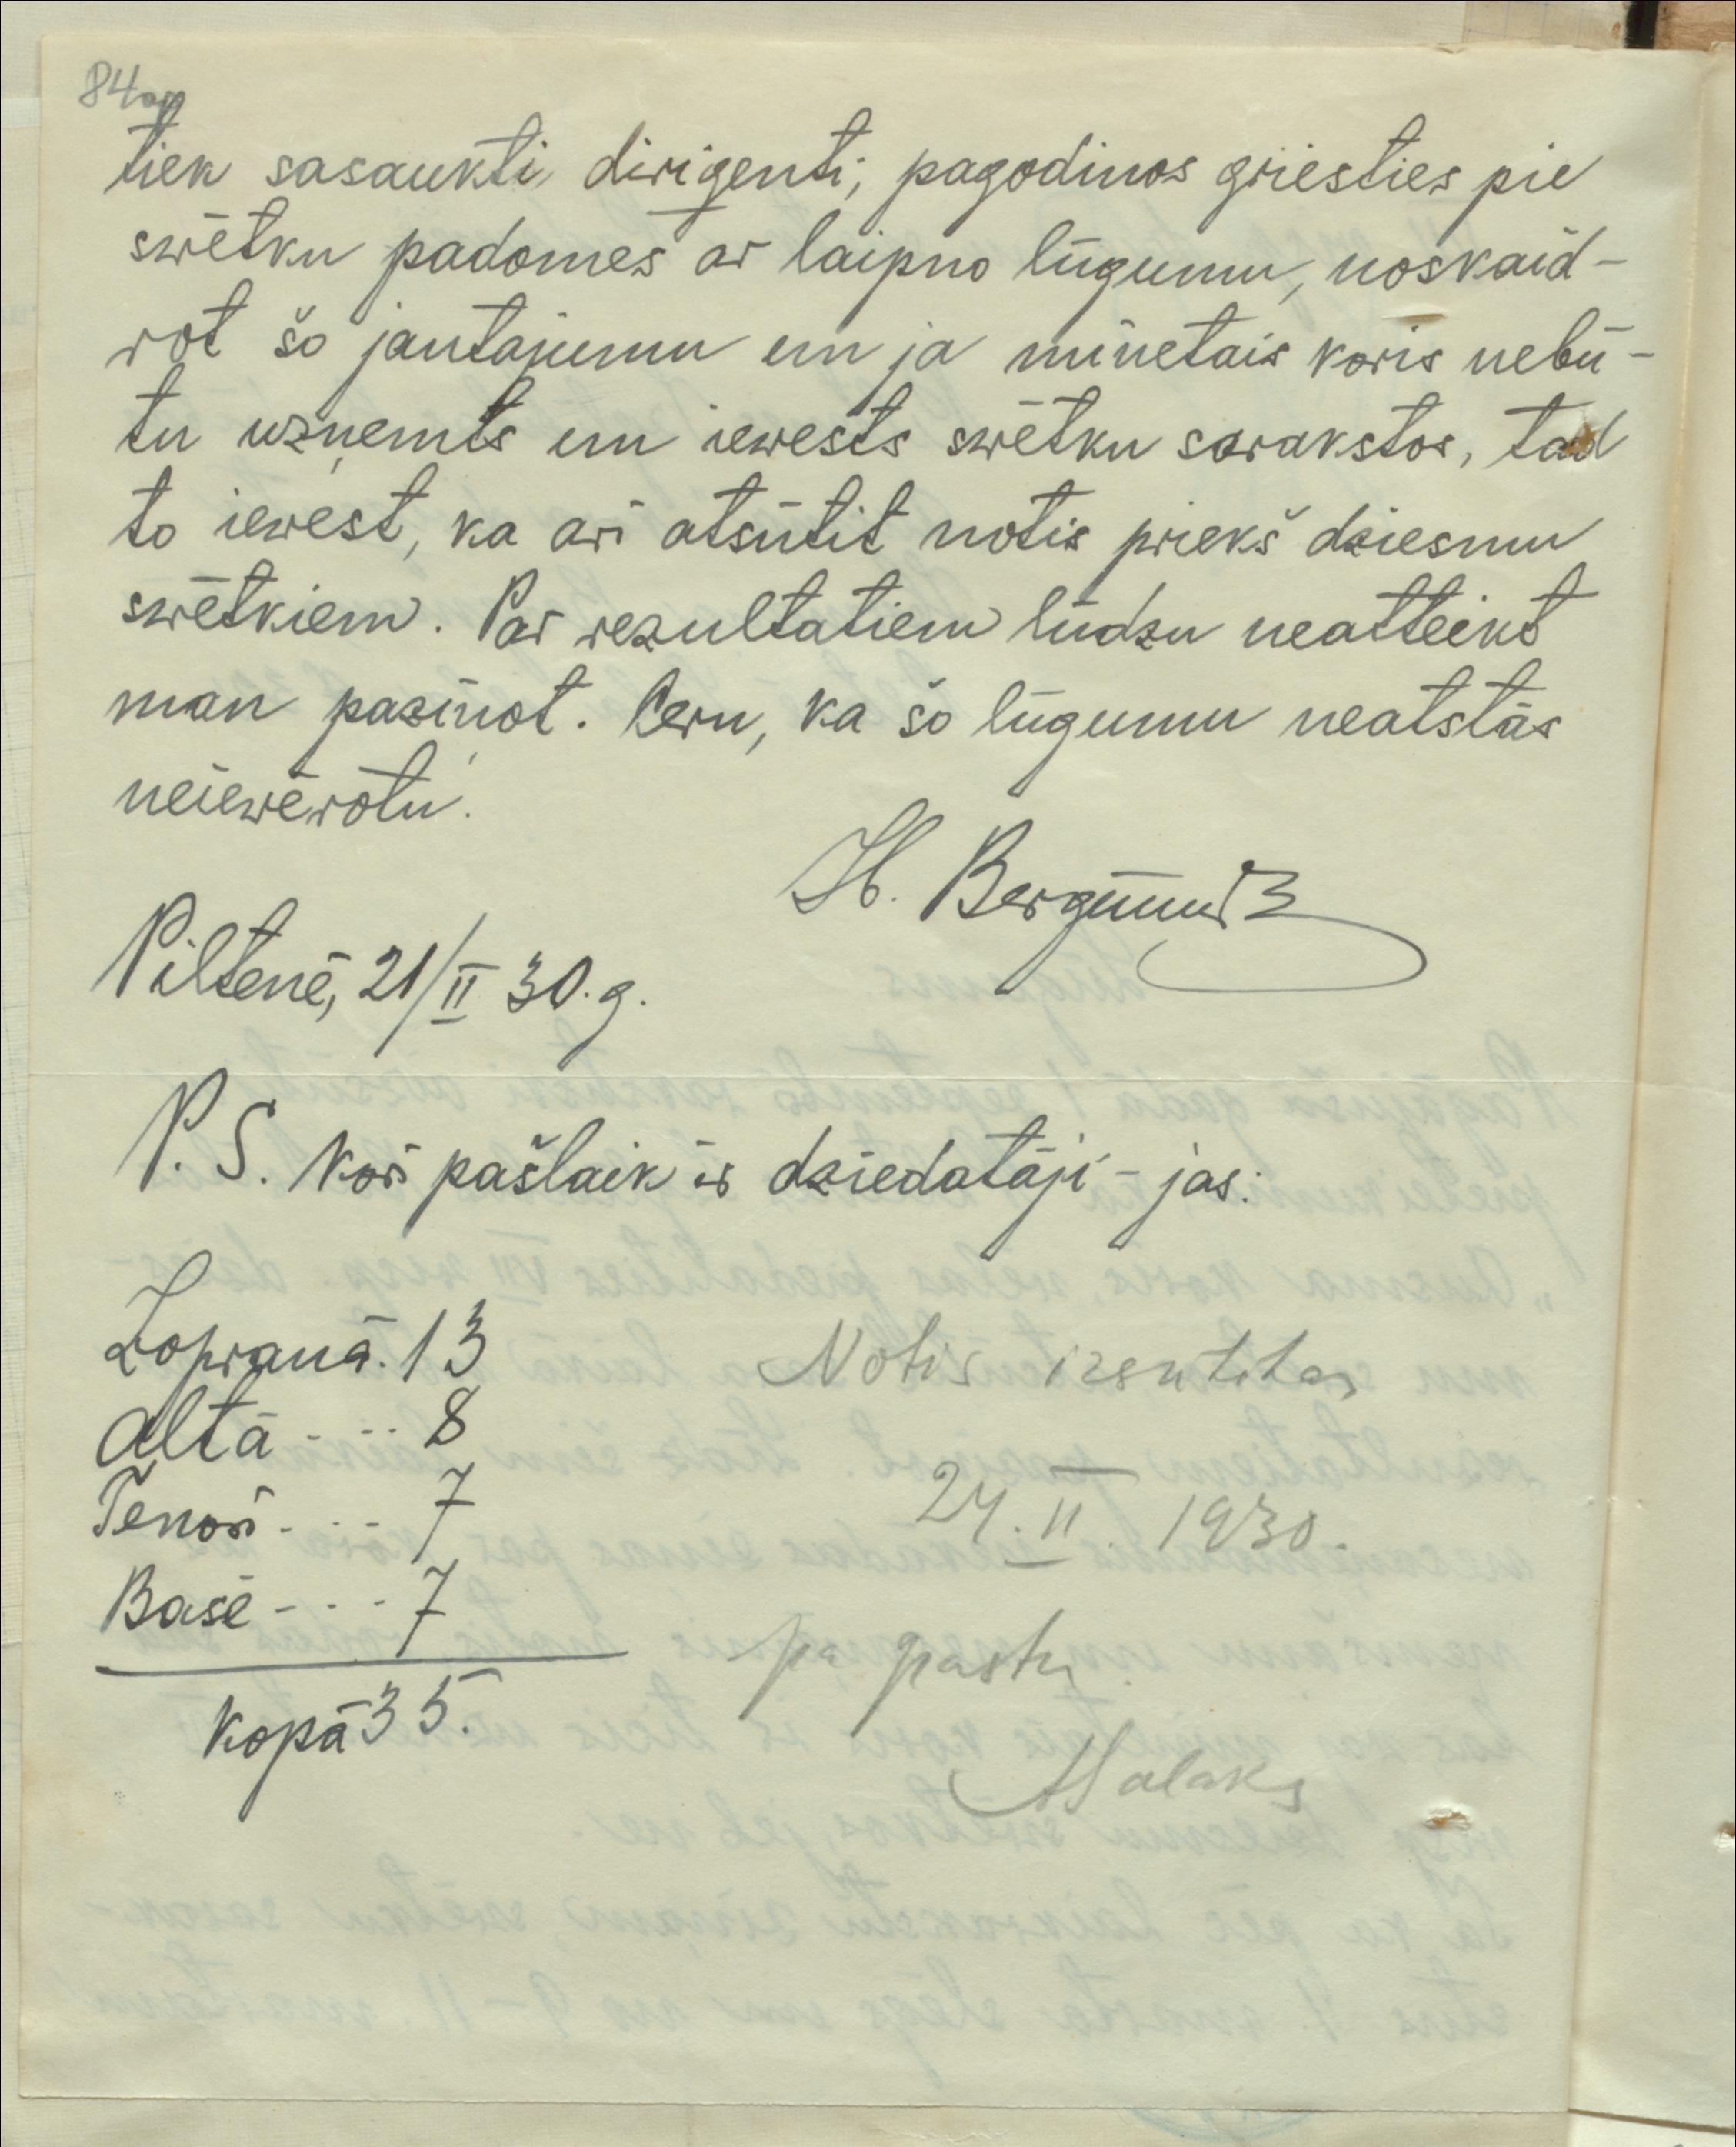 84
tiek sasaukti dirigenti, pagodinos griesties pie
swētku padomes ar laipno lūgumu, noskaid-
rot šo jautajumu un ja minetais koris nebū-
tu uzņemts un iewests swētku sarakstos, tad
to iewest, ka arī atsūtit notis priekš dziesmu
swētkiem. Par rezultatiem lūdzu neatteikt
man paziņot. Ceru, ka šo lūgumu neatstās
neiewērotu.
H.
Piltenē, 21/II 30. g.
P. S. Korī pašlaik ir dziedatāji - jas:
Sopranā. 13
Altā - - - 8
Tenorī - - - 7
Basē - - - 7
Kopā 35.
Notis izsūtitas
24. II. 1930.
pa pastu.